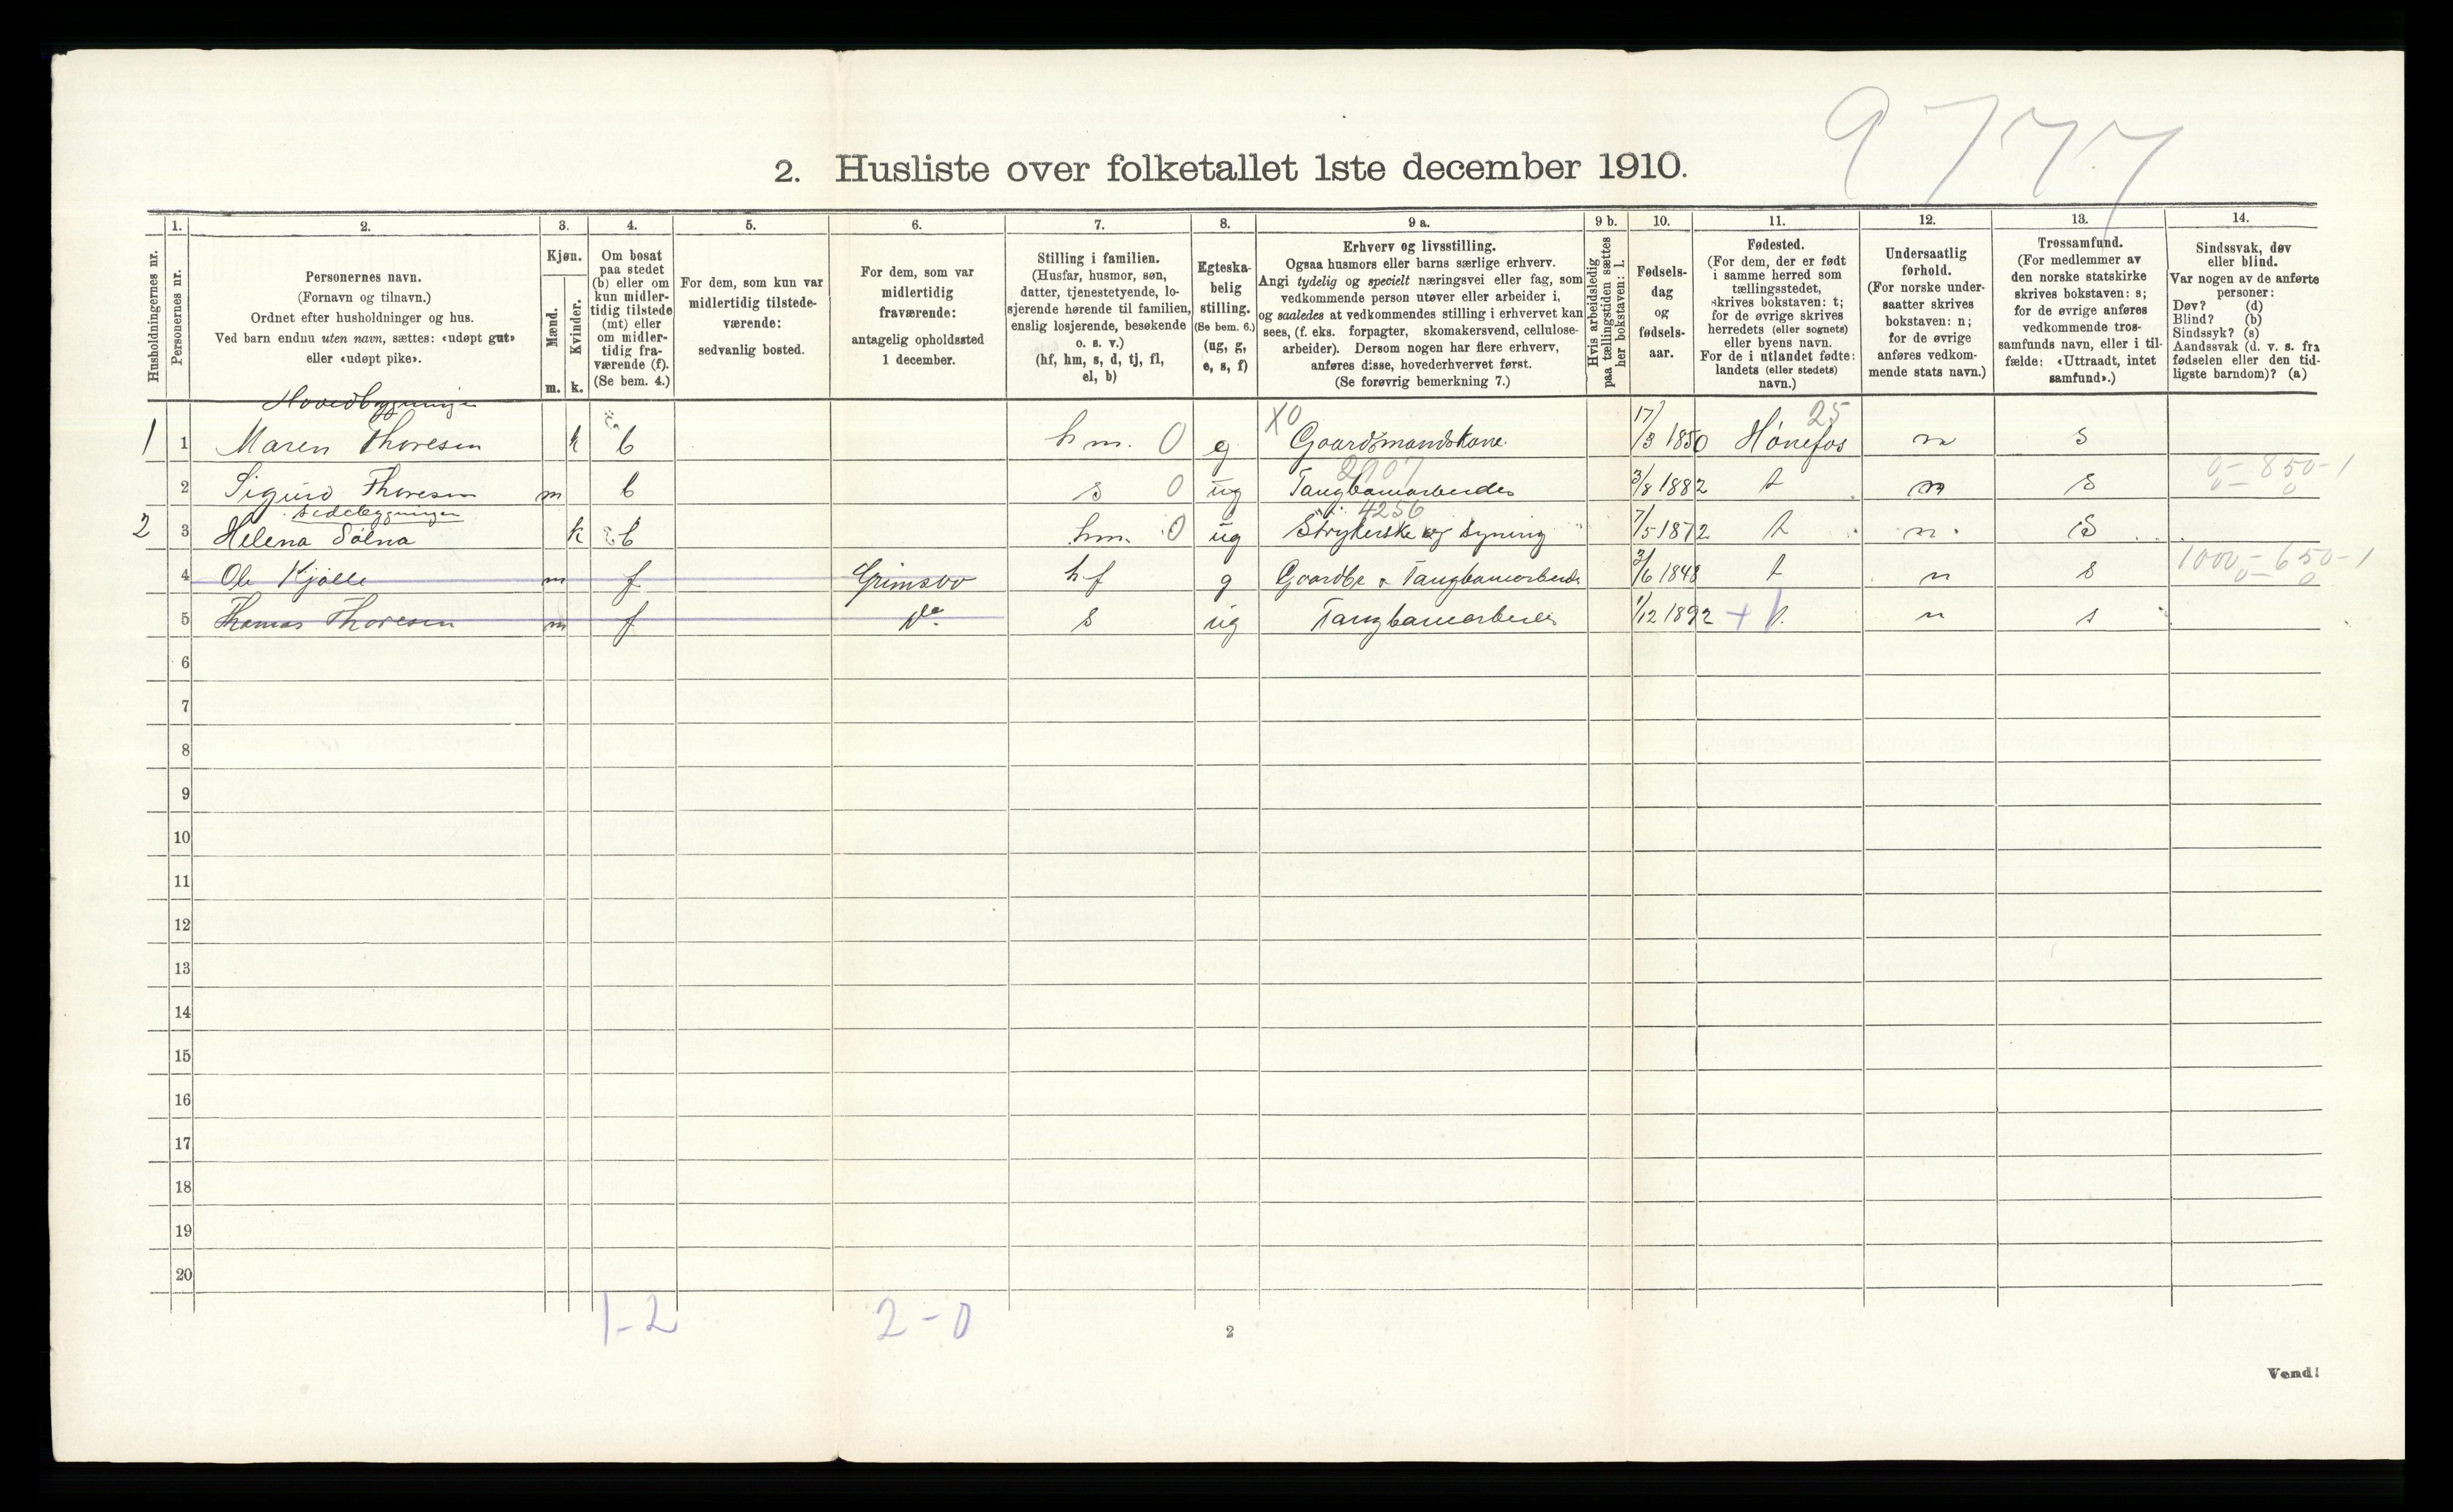 9777
2. Husliste over folketallet 1ste december 1910.
Husholdningernes nr.
1.
Personernes nr.
2.
Personernes navn.
(Fornavn og tilnavn.)
Ordnet efter husholdninger og hus.
Ved barn endnu uten navn, sættes: «udøpt gut»
eller «udøpt pike».
3.
Kjøn.
Mænd.
m.
Kvinder.
k.
4.
Om bosat
paa stedet
(b) eller om
kun midler-
tidig tilstede
(mt) eller
om midler-
tidig fra-
værende (f).
(Se bem. 4.)
5.
For dem, som kun var
midlertidig tilstede-
værende:
sedvanlig bosted.
6.
For dem, som var
midlertidig
fraværende:
antagelig opholdssted
1 december.
7.
Stilling i familien.
(Husfar, husmor, søn,
datter, tjenestetyende, lo-
sjerende hørende til familien,
enslig losjerende, besøkende
o. s. v.)
(hf, hm, s, d, tj, fl,
el, b)
8.
Egteska-
belig
stilling.
(Se bem. 6.)
(ug, g,
e, s, f)
9 a.
Erhverv og livsstilling.
Ogsaa husmors eller barns særlige erhverv.
Angi tydelig og specielt næringsvei eller fag, som
vedkommende person utøver eller arbeider i,
og saaledes at vedkommendes stilling i erhvervet kan
sees, (f. eks. forpagter, skomakersvend, cellulose-
arbeider). Dersom nogen har flere erhverv,
anføres disse, hovederhvervet først.
(Se forøvrig bemerkning 7.)
9 b.
Hvis arbeidsledig
paa tællingstiden sættes
her bokstaven: l.
10.
Fødsels-
dag
og
fødsels-
aar.
11.
Fødested.
(For dem, der er født
i samme herred som
tællingsstedet,
skrives bokstaven: t;
for de øvrige skrives
herredets (eller sognets)
eller byens navn.
For de i utlandet fødte:
landets (eller stedets)
navn.)
12.
Undersaatlig
forhold.
(For norske under-
saatter skrives
bokstaven: n;
for de øvrige
anføres vedkom-
mende stats navn.)
13.
Trossamfund.
(For medlemmer av
den norske statskirke
skrives bokstaven: s;
for de øvrige anføres
vedkommende tros-
samfunds navn, eller i til-
fælde: «Uttraadt, intet
samfund».)
14.
Sindssvak, døv
eller blind.
Var nogen av de anførte
personer:
Døv? (d)
Blind? (b)
Sindssyk? (s)
Aandssvak (d. v. s. fra
fødselen eller den tid-
ligste barndom)? (a)
Hovedbygningen
X0 25
1 1 Maren Thoresen k b hm. 0 g Gaardsmandskone. 17/3 1850 Hønefos n s
2907 0 - 850 - 1
2 Sigurd Thoresen m b s 0 ug Tangbanearbeider 3/8 1882 t n s 0
sidebygningen 4256
2 3 Helena Sølna k b hm. 0 ug Strykerske og Syning 7/5 1872 t n s
1000 - 650 - 1
4 Ole Kjølle m f Grimsbo hf g Gaardbr & Tangbanearbeide 3/6 1848 t n s 0
5 Thomas Thoresen m f Do s ug Tangbanearbeider 1/12 1892 + t n s
6
7
8
9
10
11
12
13
14
15
16
17
18
19
20
1 - 2 2 - 0
2
Vend!